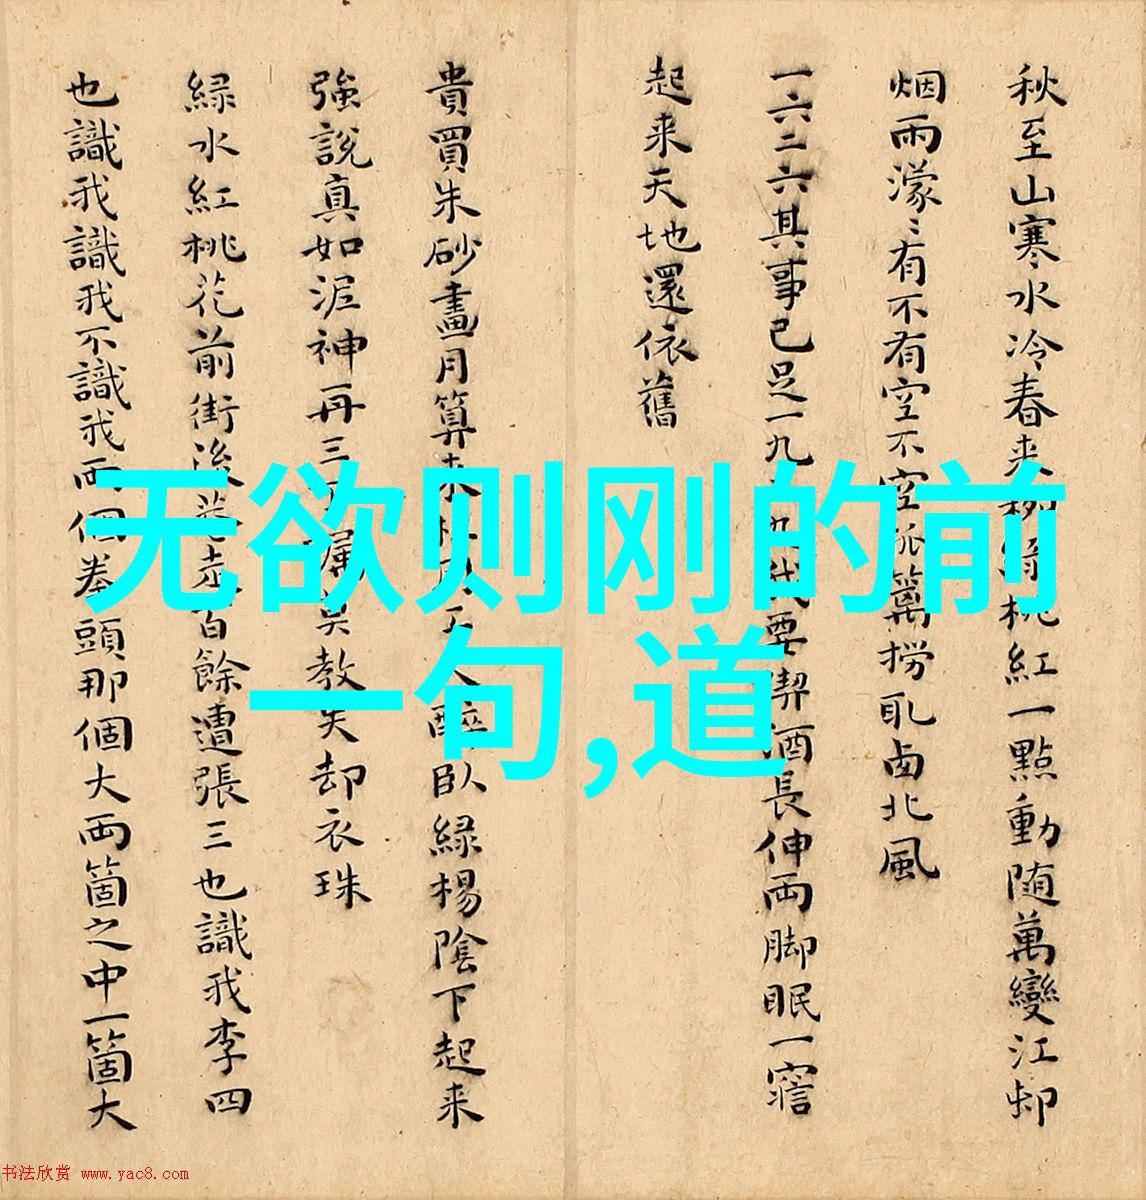 秋至山寒水冷春来柳緑桃紅一點動随萬變江邨
烟雨濛〻有不有空不空笊籬撈取西北風
一六二六其事已足一九二九我要喫酒長伸両脚眠一寤
起来天地還依舊
貴買朱砂畫月算来醉臥緑楊陰下起来
強說真如泥神再三嘱莫教失却衣珠
緑水紅桃花前街後巷走百餘遭張三也識我李四
也識我識我不識我両個拳頭那個大両箇之中一箇大
无欲则刚的前
一句,道
书法欣赏 www.yac8.com